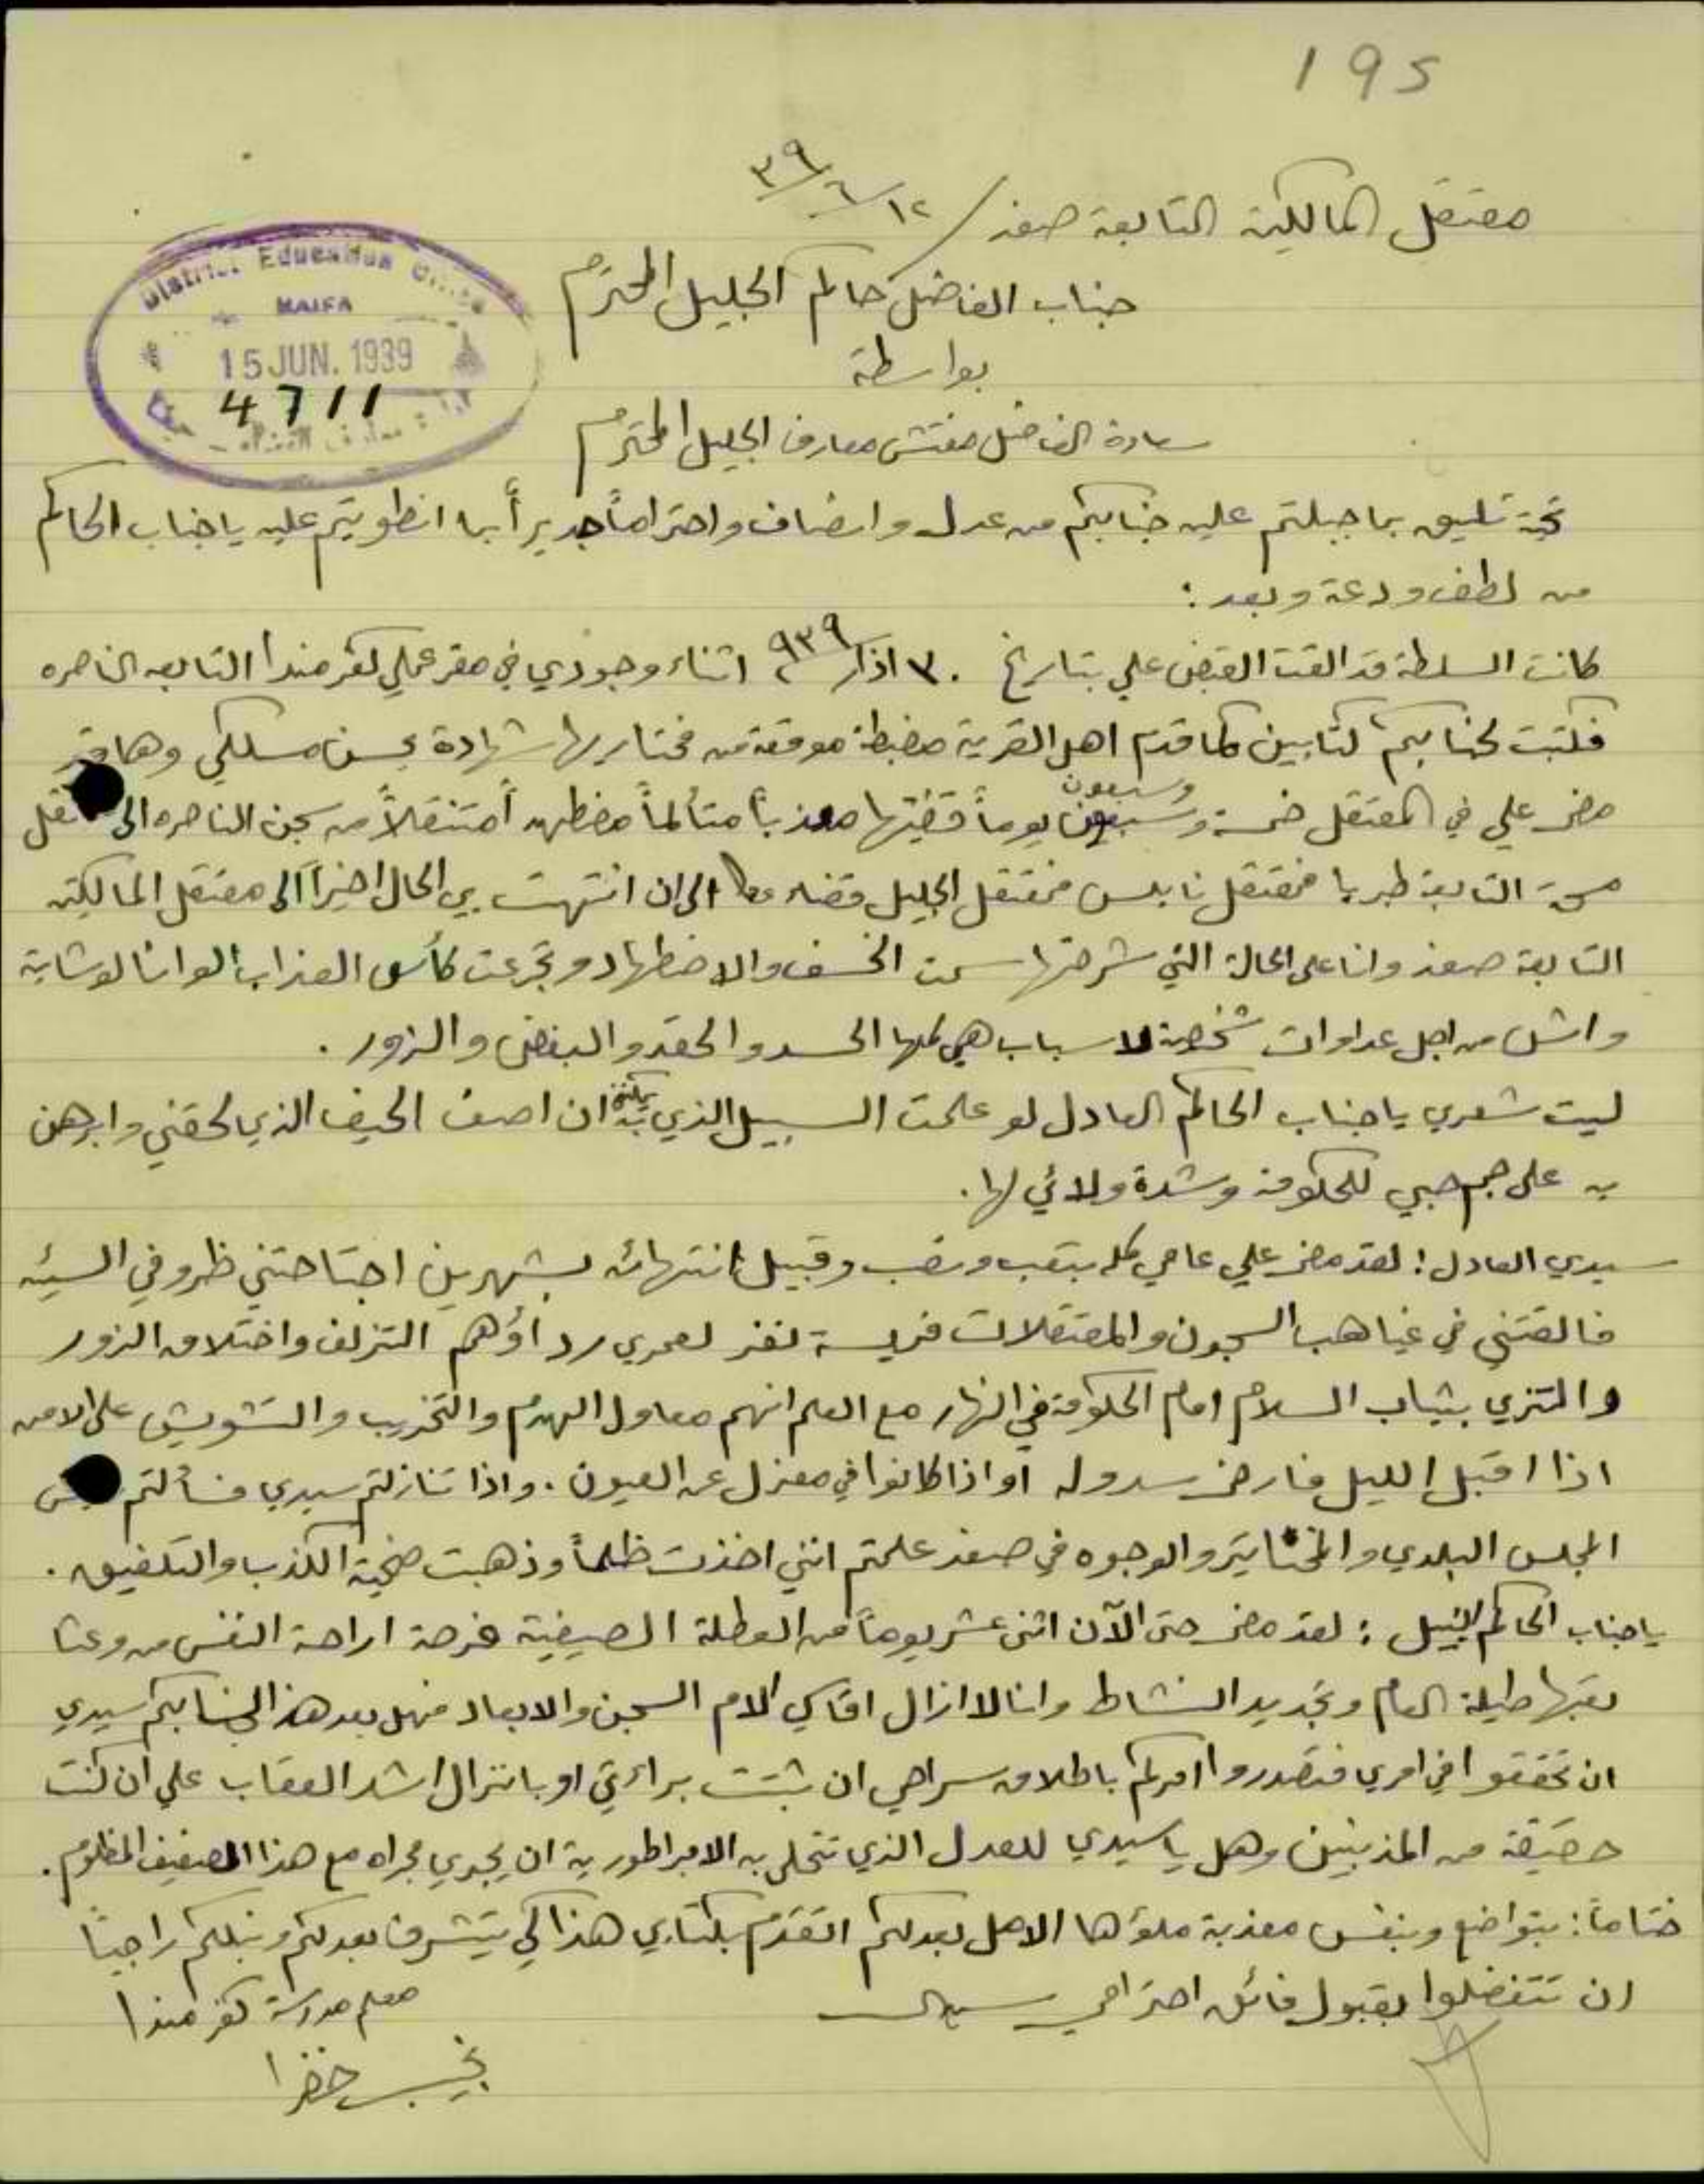 195
معتقل المالكية التابعة صفد / ١٢/٦/٣٩
جناب الفاضل حاكم الجليل المحترم
بواسطة
سعادة الفاضل مفتش معارف الجليل المحترم
District Education Office
HAIFA
15 JUN. 1939
4711
معارف القضاء - حيفا
تحية تليق بما جبلتم عليه جنابكم من عدل وانصاف واحتراماً جديراً بما انطويتم عليه يا جناب الحاكم
من لطف ودعة وبعد :
كانت السلطة قد القت القبض علي بتاريخ ٣٠ اذار ٩٣٩ اثناء وجودي في مقر عملي كفر مندا التابعه الناصره
فكتبت لجنابكم كتابين كما قدم اهل القرية مضبطة موقعة من مختاريها شهادة بحسن مسلكي وها قد
مضى علي في المعتقل خمسة وسبعون يوماً قضيتها معذباً متألماً مضطهداً متنقلاً من سجن الناصره الى معتقل
التابعة طبريا فمعتقل نابلس فمعتقل الجليل قضاء عكا الى ان انتهت بي الحال اخيراً الى معتقل المالكية
التابعة صفد وانا على الحالة التي شرحتها سمت الخسف والاضطهاد وتجرعت كأس العذاب الوانا لوشاية
واش من اجل عداوات شخصية لاسباب هي كلها الحسد والحقد والبغض والزور .
ليت شعري يا جناب الحاكم العادل لو علمت السبيل الذي يمكنني ان اصف الحيف الذي لحقني وابرهن
به على جم حبي للحكومة وشدة ولائي لها .
سيدي العادل : لقد مضى علي عامي كله بتعب ونصب وقبيل انتهائه بشهرين اجتاحتني ظروفي السيئه
فالقتني في غياهب السجون والمعتقلات فريسة لنفر لعمري رداؤهم التزلف واختلاق الزور
والتزي بثياب السلام امام الحكومة في النهار مع العلم انهم معاول الهدم والتخريب والتشويش على الامن
اذا اقبل الليل فارخى سدوله او اذا كانوا في معزل عن العيون . واذا تنازلتم سيدي فسألتم رئيس
المجلس البلدي والمخاتير والوجوه في صفد علمتم انني اخذت ظلماً وذهبت ضحية الكذب والتلفيق .
يا جناب الحاكم النبيل : لقد مضى حتى الآن اثنى عشر يوماً من العطلة الصيفية فرصة اراحة النفس من وعثا
تعبها طيلة العام وتجديد النشاط وانا لا ازال اقاسي الام السجن والابعاد فهل بعد هذا لجنابكم سيدي
ان تحققوا في امري فتصدروا امركم باطلاق سراحي ان ثبتت براءتي او بانزال اشد العقاب علي ان كنت
حقيقة من المذنبين وهل يا سيدي للعدل الذي تتحلى به الامبراطورية ان يجري مجراه مع هذا الضعيف المظلوم .
ختاماً : بتواضع وبنفس معذبة ملؤها الامل بعدلكم اتقدم بكتابي هذا لكي يتشرف بعدلكم ونبلكم راجياً
ان تتفضلوا بقبول فائق احترامي سيدي
معلم مدرسة كفر مندا
نجيب خضرا